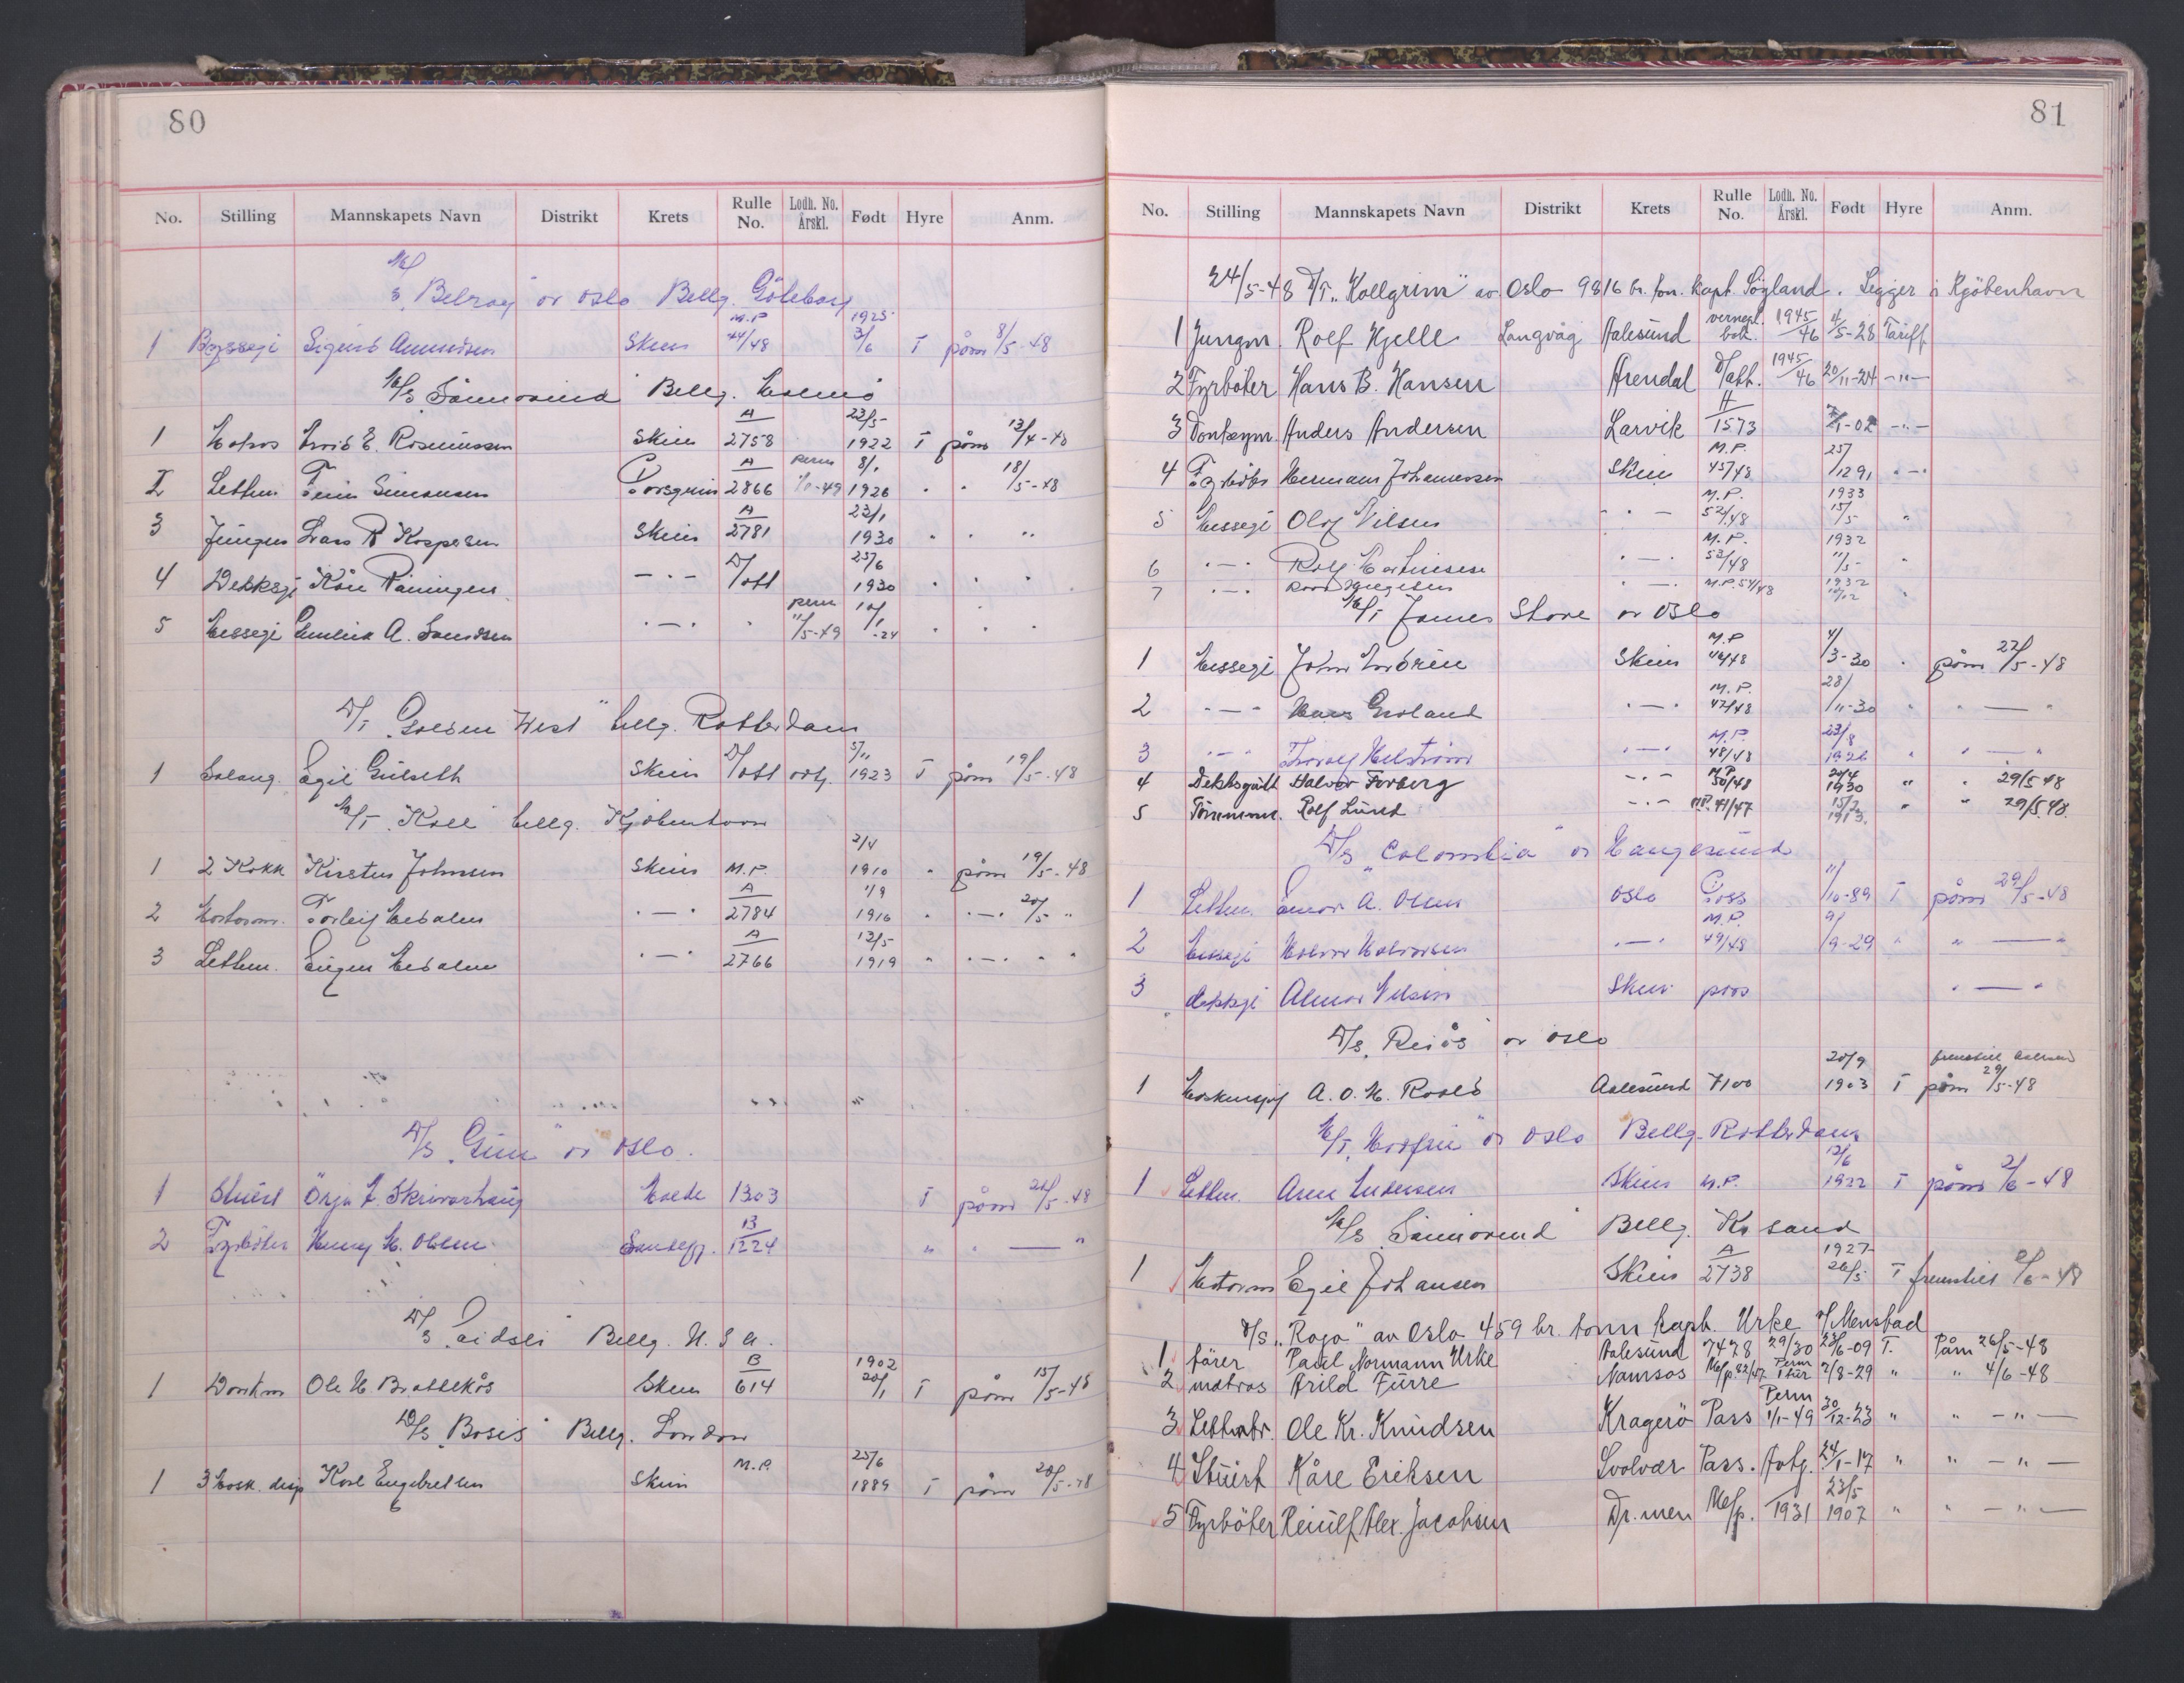 80
No. Stilling Mannskapets Navn Distrikt Krets Rulle No. Lodh. No. Årskl. Født Hyre Anm.
M/S "Belray" av Oslo Bellg. Göteborg
1 Byssegj Sigurd Amundsen Skien M.P. 44/48 1925 3/6 T påm 8/5-48
M/S "Sunnovind" Bellg.
1 Matros E. Rasmussen Skien A 2758 23/5 1922 T påm 13/4-48
2 Lettm. Finn Simonsen Porsgrunn A 2866 perm 1/10-49 8/1 1926 " " 18/5-48
3 Jungm Lars R Kaspersen Skien A 2781 23/1 1930 " " "
4 Dekksgj Kåre Råningen - " - D/att 25/6 1930 " " "
5 Messegj A. - " - " perm 11/5-49 10/1 -24 " " "
D/T "Golden West" bellg. Rotterdam
1 Salong. Egil Gulseth Skien D/att 5/11 1923 T påm 19/5-48
M/T "Koll" bellg. Kjøbenhavn
1 2 Kokk Kirsten Johnsen Skien M.P. 2/4 1910 " påm 19/5-48
2 Motorm. Torleif Medalen - " - A 2784 1/9 1916 " - " - 20/5 "
3 Lettm. Eugen Medalen - " - A 2766 13/5 1919 " - " - " "
D/S "Gun" av Oslo.
1 Stuert Ørja L. Skrivarhaug Molde 1303 T påm 21/5-48
2 Fyrbøter Henry M. Olsen Sandefj. B 1224 " " — "
D/S "Eidsli" Bellg. U.S.A.
1 Donkm Ole H Brattekås Skien B 614 1902 20/1 T påm 15/5-48
D/S "Bosis" Bellg. London
1 3 Mask. disp Karl Engebretsen Skien M.P. 25/6 1889 T påm 20/5-48
81
No. Stilling Mannskapets Navn Distrikt Krets Rulle No. Lodh. No. Årskl. Født Hyre Anm.
24/5-48 D/T "Kollgrim" av Oslo 9816 br. ton. kapt. Sögland. Ligger i Kjöbenhavn
1 Jungm. Rolf Hjelle Langvåg Aalesund vernepl. bok. 1945/46 4/5-28 Tariff
2 Fyrböter Hans B. Hansen Arendal D/att. 1945/46 20/11-24 - " -
3 Donkeym. Anders Andersen Larvik A 1573 7/1-02 - " -
4 Fyrbøter Hermann Johannessen Skien M.P. 45/48 25/12 91 " - "
5 Messegj Olaf Nilsen - " - M.P. 52/48 1933 15/5 "
6 - " - Rolf Martinsen - " - M.P. 53/48 1932 11/5 "
7 - " - - " - M.P. 54/48 1932 10/12 "
M/T James Stove av Oslo
1 Messegj John Skien M.P. 46/48 4/3-30 " påm 22/5-48
2 - " - Hans Groland - " - M.P. 47/48 28/11-30 " " — "
3 - " - Thorolf Helstrøm - " - M.P. 48/48 23/8 1926 " " — "
4 Dekksgutt Halvor Forberg - " - M.P. 50/48 20/4 1930 " " 29/5 48
5 Tömmerm. Rolf Lund - " - M.P. 41/47 15/2 1913. " " 29/5 48.
D/S "Colombia" av Haugesund
1 Lettm. Einar A. Olsen Oslo Pass 11/10-89 T påm 29/5-48
2 Messegj Halvor Halvorsen - " - M.P. 49/48 9/9-29 " " — "
3 dekksgj Almar Nilsen Skien pass " — "
D/S "Reiås" av Oslo
1 Maskinsjef A. O. H. Roald Aalesund 7100 20/9 1903 T fremstill Aalesund påm 29/5-48
M/T "Norfinn" av Oslo Bellg. Rotterdam
1 Lettm. Arne Andersen Skien M.P. 12/6 1922 T påm 2/6-48
M/S "Sunnovind" Bellg. Kr sand
1 Motorm Egil Johansen Skien A 2738 1927 26/5 T fremstill 2/6-48
D/S "Rogo" av Oslo 459 br. tonn kapt. Urke v/ Menstad
1 fører Paul Normann Urke Aalesund 7478 29/30 23/6-09 T. Påm 26/5-48
2 matros Arild Furre Namsos M/p. 32/47 Perm 1 tur 2/8-29 " " 4/6-48
3 Lettmtr. Ole Kr. Knudsen Kragerö Pass Perm 1/1-49 30/12-23 " " - " -
4 Stuert Kåre Eriksen Svolvær Pass. Avtj. 24/1-17 " " - " -
5 Fyrböter Reiulf Alex. Jacobsen Dr.men M/p. 1931 23/5 1907 " " - " -